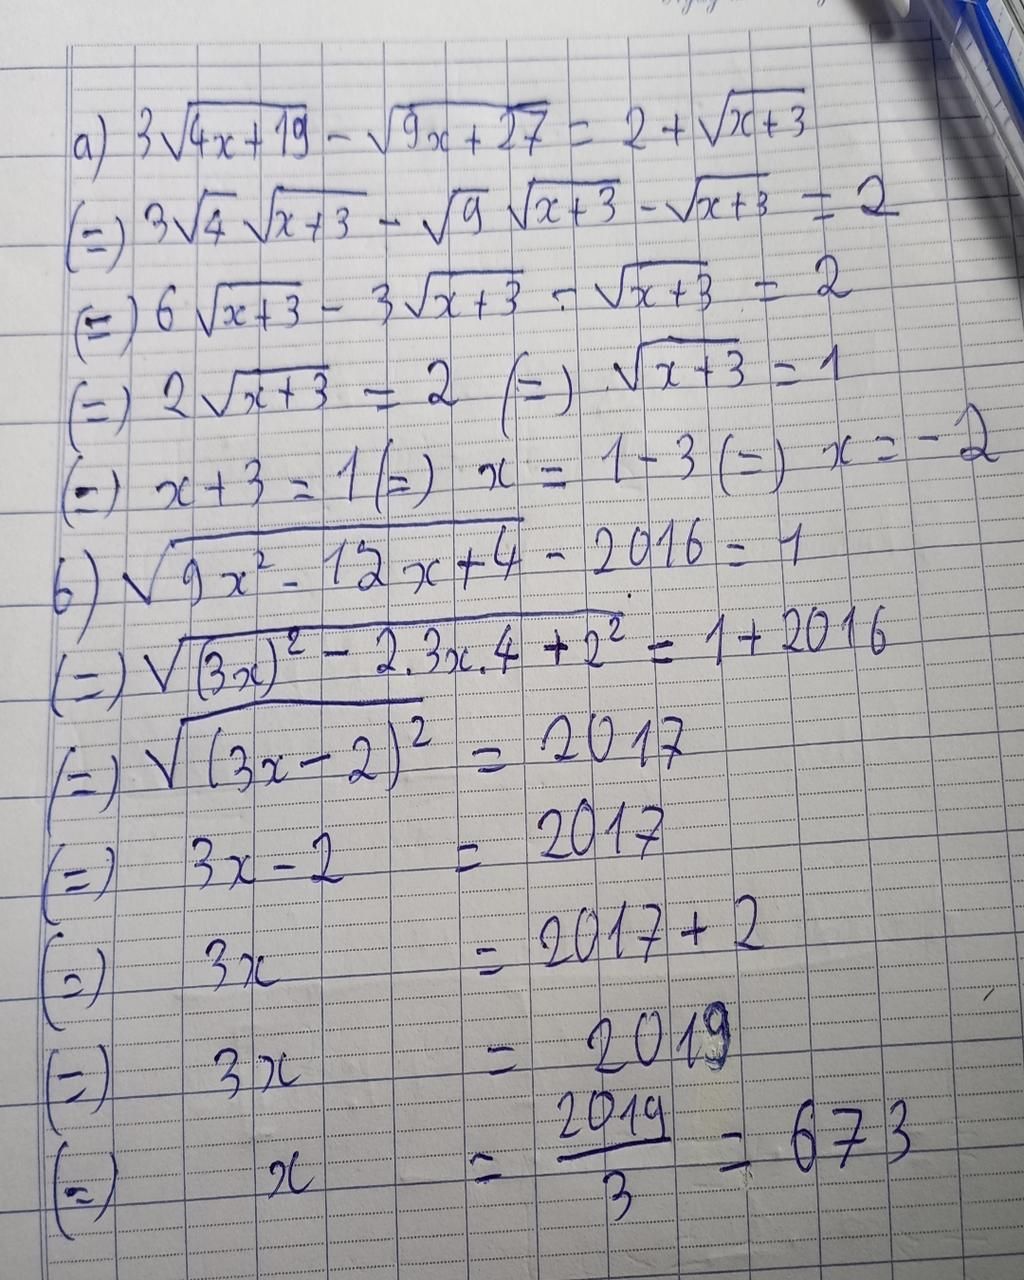 a) 3√(4x+19) - √(9x+27) = 2 + √(x+3)
(=) 3√4 √(x+3) - √9 √(x+3) - √(x+3) = 2
(=) 6√(x+3) - 3√(x+3) - √(x+3) = 2
(=) 2√(x+3) = 2 (=) √(x+3) = 1
(=) x+3 = 1 (=) x = 1-3 (=) x = -2
b) √(9x² - 12x+4) - 2016 = 1
(=) √((3x)² - 2.3x.4 + 2²) = 1 + 2016
(=) √((3x-2)²) = 2017
(=) 3x-2 = 2017
(=) 3x = 2017 + 2
(=) 3x = 2019
(=) x = 2019/3 = 673